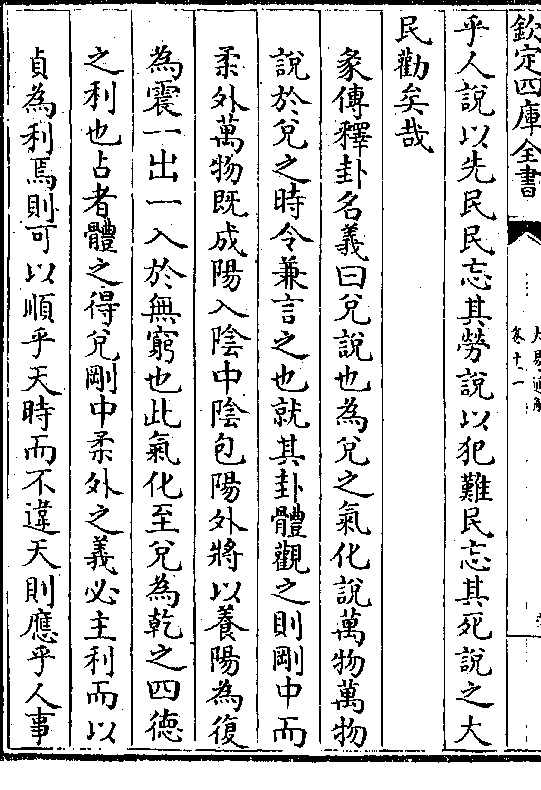 欽定四庫全書
卷十一
乎人說以先民民忘其勞說以犯難民忘其死說之大
民勸矣哉
彖傳釋卦名義曰兌說也為兌之氣化說萬物萬物
說於兌之時令兼言之也就其卦體觀之則剛中而
柔外萬物既成陽入陰中陰包陽外將以養陽為復
為震一出一入於無窮也此氣化至兌為乾之四德
之利也占者體之得兌剛中柔外之義必主利而以
貞為利焉則可以順乎天時而不違天則應乎人事